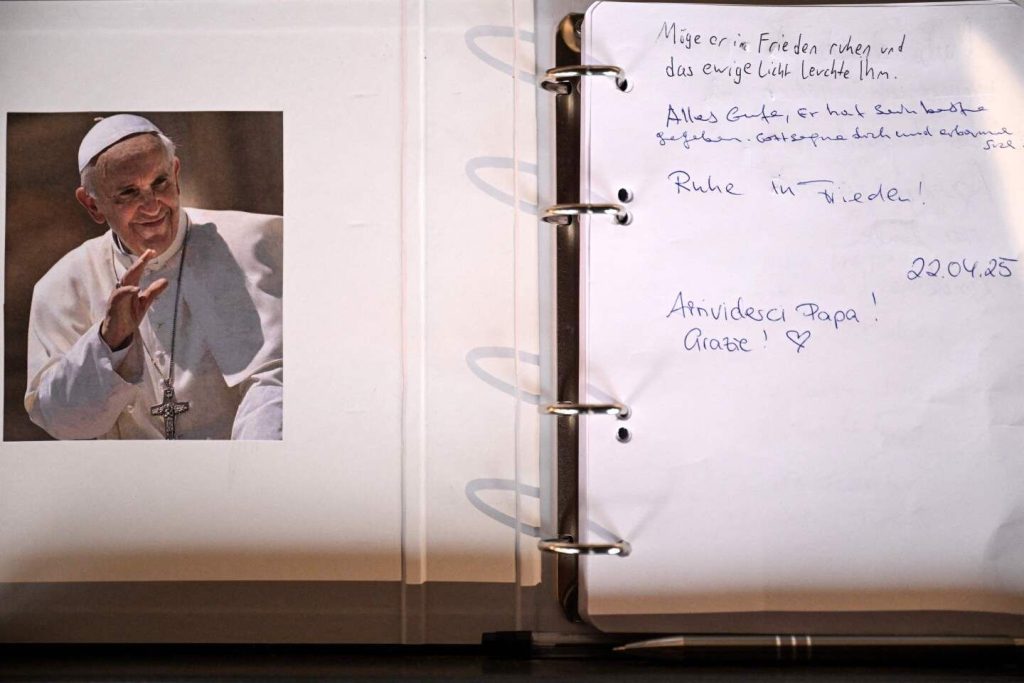 Möge er in Frieden ruhen und
das ewige Licht leuchte Ihm.
Alles Gute, Er hat sein beste
gegeben. Gott segne dich und erbarme
Ruhe in Frieden!
22.04.25
Arrividerci Papa!
Grazie! ♡